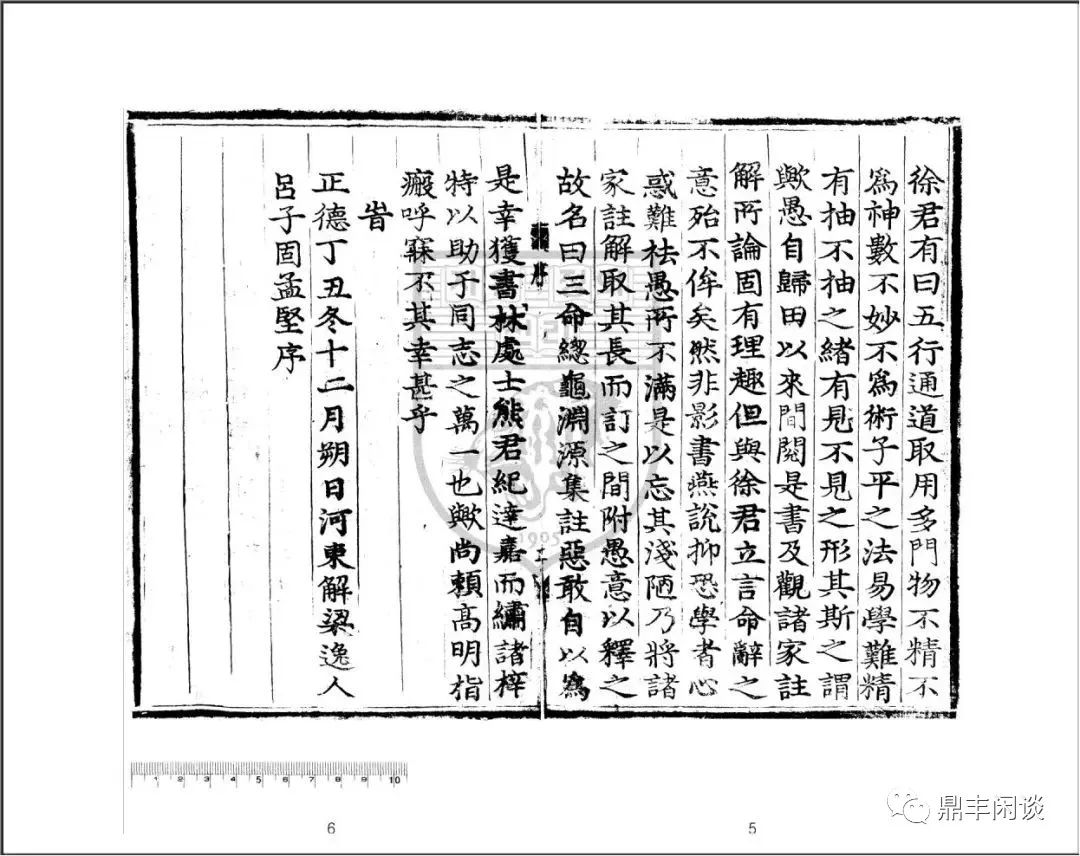 徐君有曰五行通道取用多門物不精不
爲神數不妙不爲術子平之法易學難精
有抽不抽之緒有見不見之形其斯之謂
歟愚自歸田以來間閱是書及觀諸家註
解所論固有理趣但與徐君立言命辭之
意殆不侔矣然非影書燕說抑恐學者心
惑難袪愚所不滿是以忘其淺陋乃將諸
家註解取其長而訂之間附愚意以釋之
故名曰三命總龜淵源集註惡敢自以爲
序
二
是幸獲書林處士熊君紀達嘉而繡諸梓
特以助于同志之萬一也歟尚賴高明指
瘢呼寐不其幸甚乎
旹
正德丁丑冬十二月朔日河東解梁逸人
呂子固孟堅序
1905
1 2 3 4 5 6 7 8 9 10
6
5
鼎丰闲谈